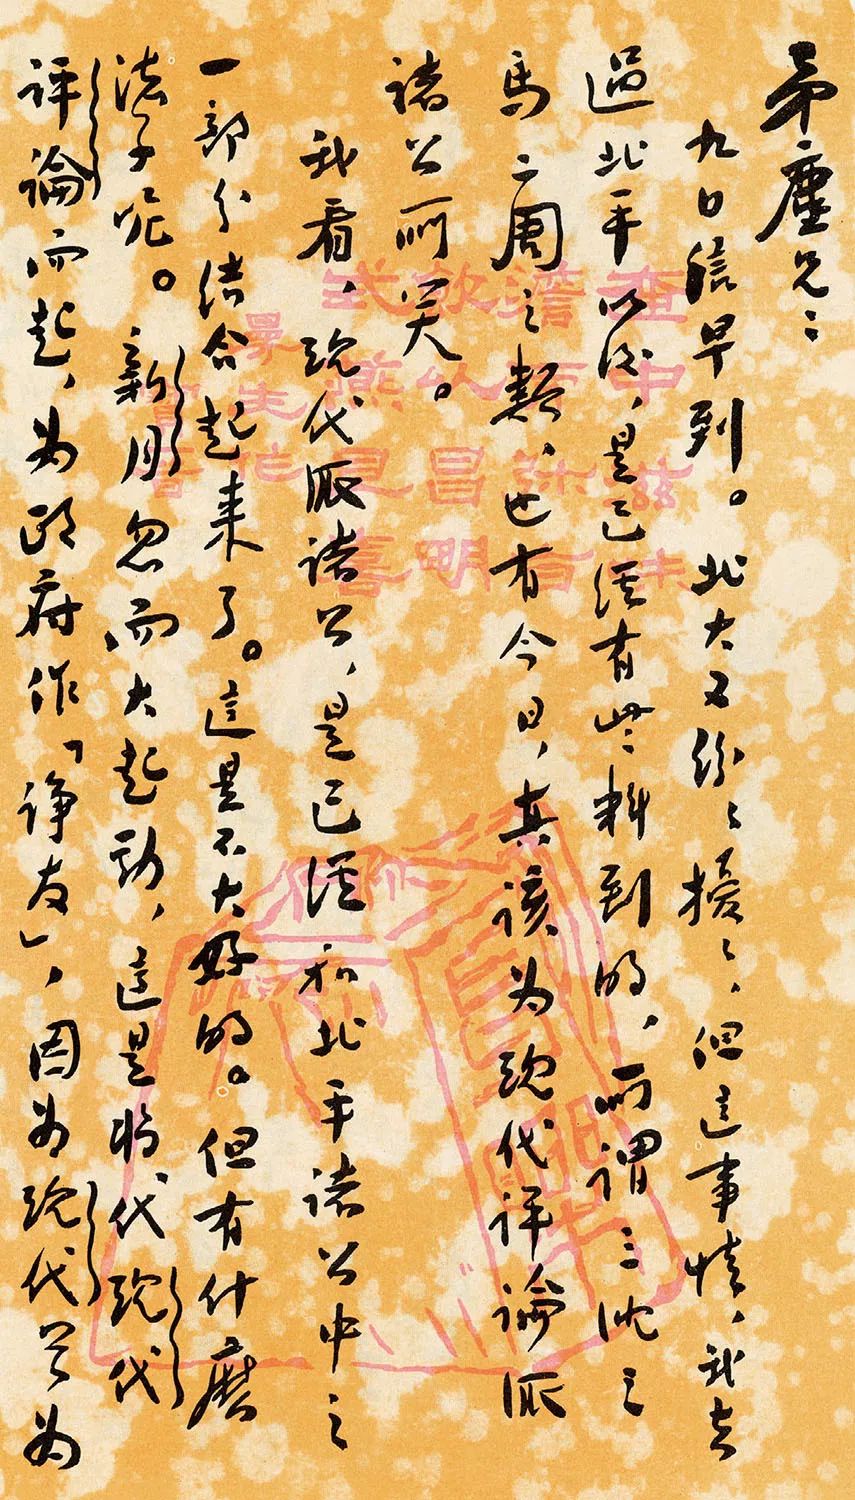 矛塵兄：
九日信早到。北大又紛〻擾〻，但這事情，我去
過北平以後，是已經有些料到的，所謂三沈三
馬二周之類，也有今日，真該為現代評論派
諸公所笑。
我看，現代派諸公，是已經和北平諸公中之
一部分結合起來了。這是不大好的。但有什麼
法子呢。新月忽而大起勁，這是將代現代
評論而起，為政府作「諍友」，因為現代曾為